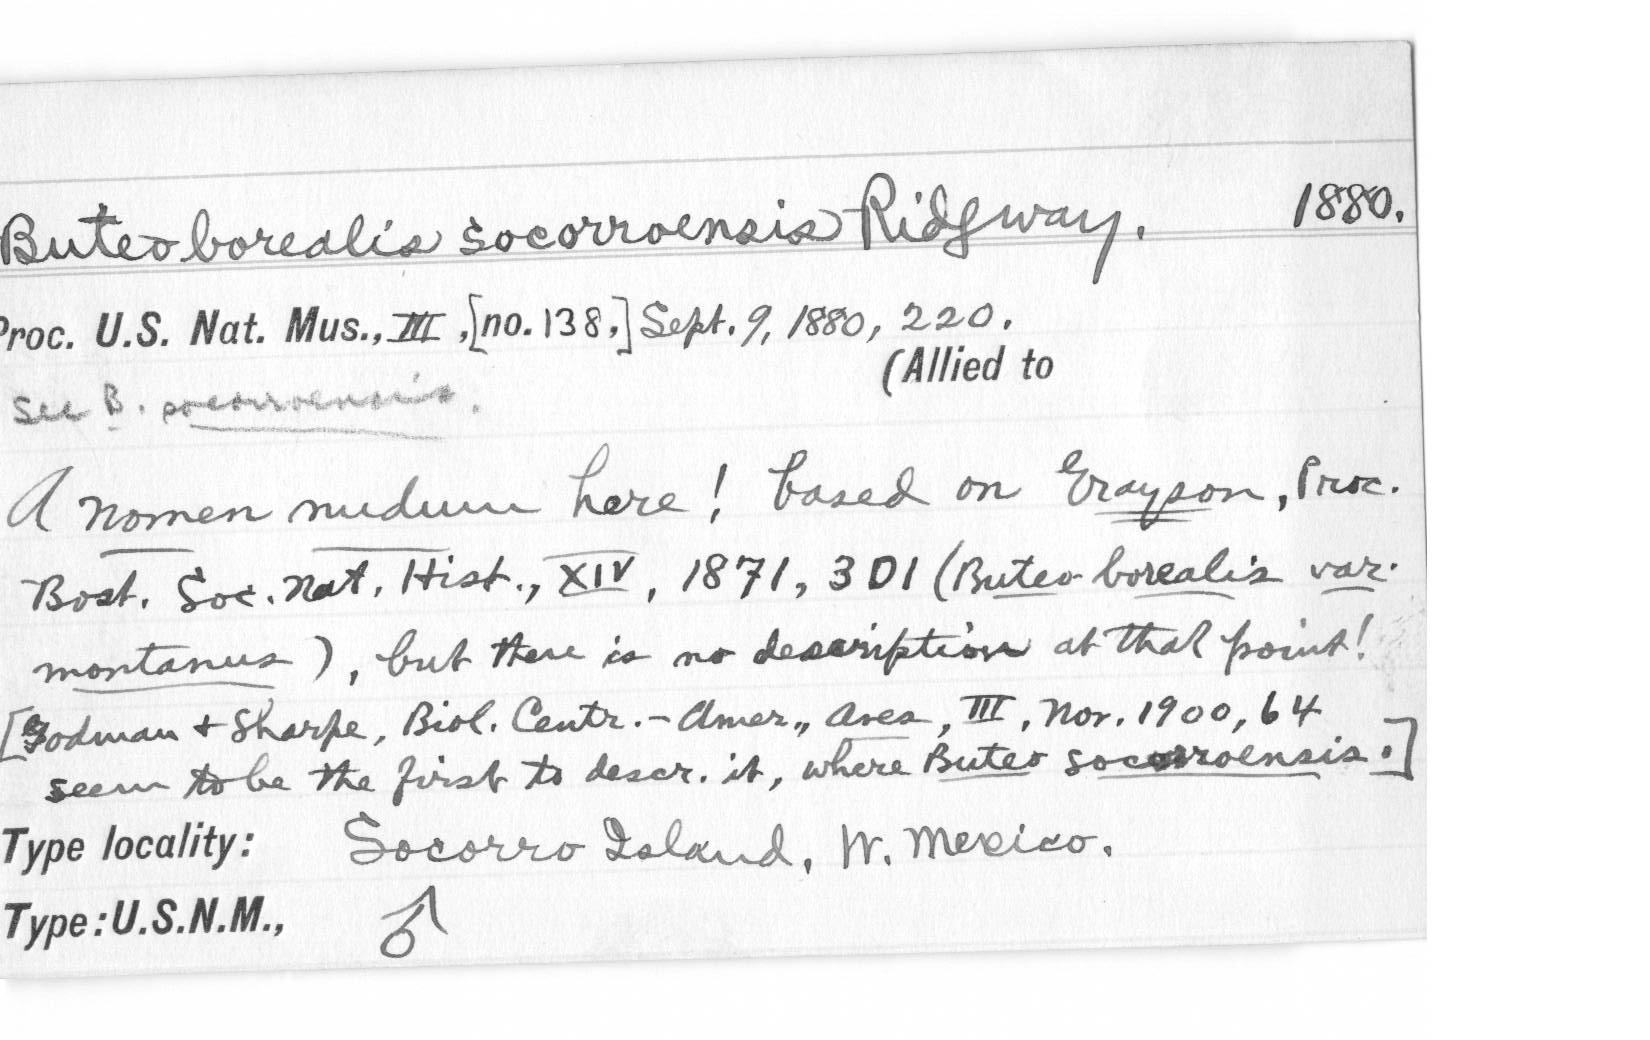 Buteo borealis socorroensis Ridgway. 1880.
Proc. U.S. Nat. Mus., III, [no. 138,] Sept. 9, 1880, 220.
(Allied to
See B. socorroensis.
A nomen nudum here! based on Grayson, Proc.
Bost. Soc. Nat. Hist., XIV, 1871, 301 (Buteo borealis var.
montanus), but there is no description at that point!
[Godman + Sharpe, Biol. Centr.-Amer., Aves, III, Nov. 1900, 64
seem to be the first to descr. it, where Buteo socorroensis.]
Type locality: Socorro Island, W. Mexico.
Type: U.S.N.M., ♂